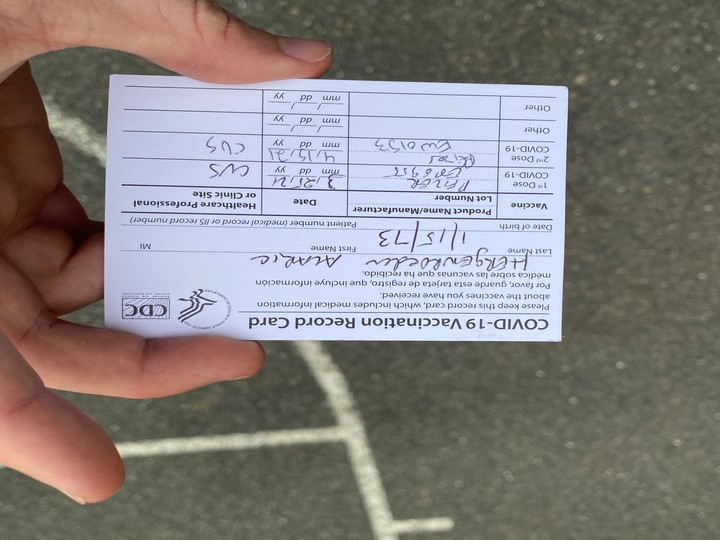 COVID-19 Vaccination Record Card
CDC
Please keep this record card, which includes medical information
about the vaccines you have received.
Por favor, guarde esta tarjeta de registro, que incluye información
médica sobre las vacunas que ha recibido.
Last Name First Name MI
1/15/73
Date of birth Patient number (medical record or IIS record number)
Vaccine Product Name/Manufacturer Lot Number Date Healthcare Professional or Clinic Site
1st Dose COVID-19 PFIZER 3/25/21 CVS
mm dd yy
2nd Dose COVID-19 Pfizer EW0153 4/15/21 CVS
mm dd yy
Other mm dd yy
Other mm dd yy